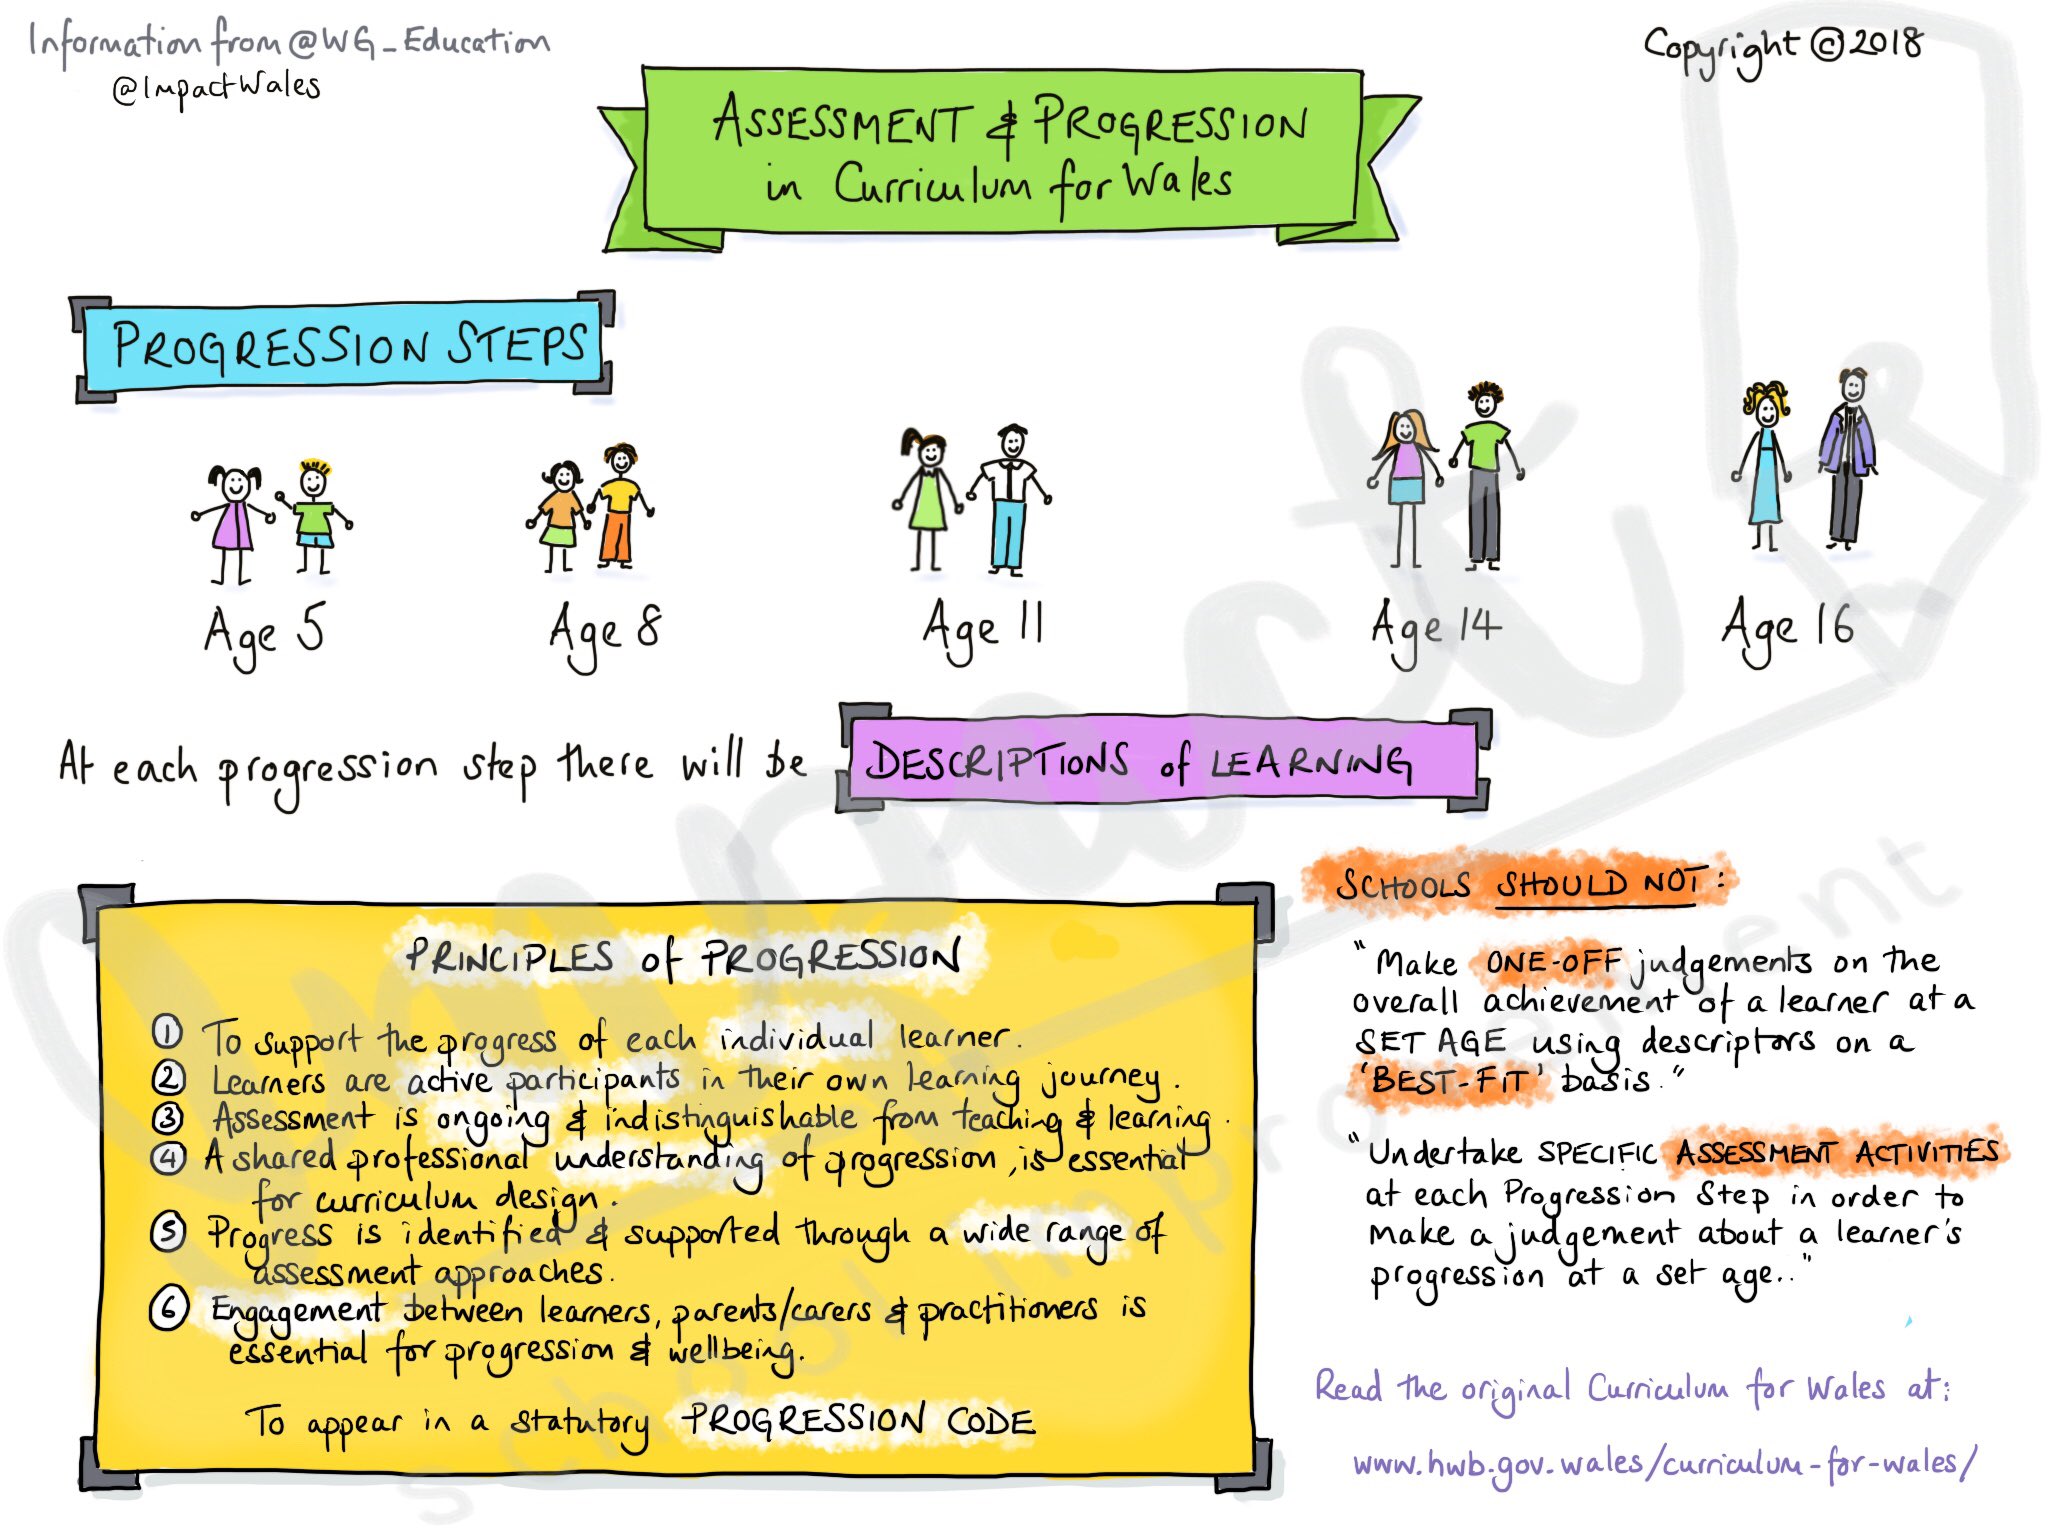 Information from @WG_Education
@ImpactWales
Copyright ©2018
ASSESSMENT & PROGRESSION
in Curriculum for Wales
PROGRESSION STEPS
Age 5
Age 8
Age 11
Age 14
Age 16
At each progression step there will be
DESCRIPTIONS of LEARNING
PRINCIPLES of PROGRESSION
1 To support the progress of each individual learner.
2 Learners are active participants in their own learning journey.
3 Assessment is ongoing & indistinguishable from teaching & learning.
4 A shared professional understanding of progression, is essential
for curriculum design.
5 Progress is identified & supported through a wide range of
assessment approaches.
6 Engagement between learners, parents/carers & practitioners is
essential for progression & wellbeing.
To appear in a statutory PROGRESSION CODE
SCHOOLS SHOULD NOT:
"Make ONE-OFF judgements on the
overall achievement of a learner at a
SET AGE using descriptors on a
'BEST-FIT' basis."
"Undertake SPECIFIC ASSESSMENT ACTIVITIES
at each Progression Step in order to
make a judgement about a learner's
progression at a set age.."
Read the original Curriculum for Wales at:
www.hwb.gov.wales/curriculum-for-wales/
Impact
school improvement